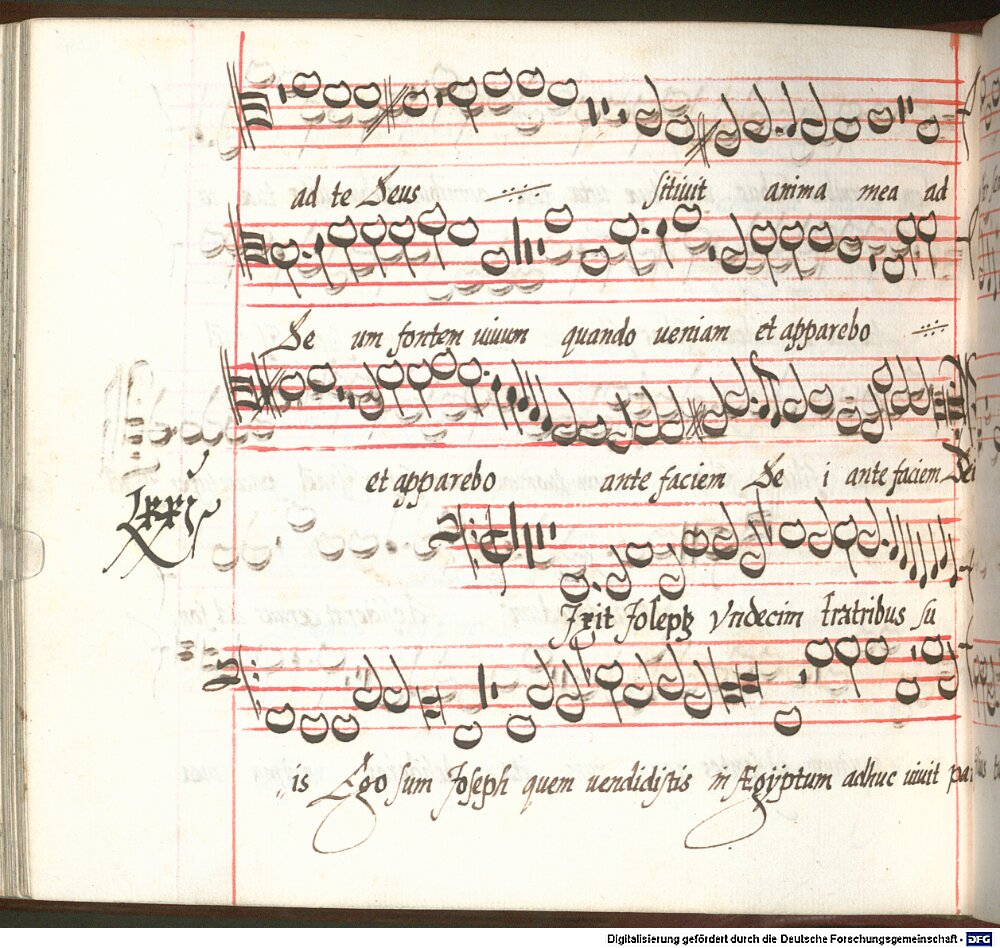 ad te Deus sitiuit anima mea ad
De um fontem uiuum quando ueniam et apparebo
et apparebo ante faciem De i ante faciem Dei
Lxxj
Ixit Joseph Vndecim fratribus su
is Ego sum Joseph quem uendidistis in Ægÿptum adhuc uiuit pa
Digitalisierung gefördert durch die Deutsche Forschungsgemeinschaft - DFG